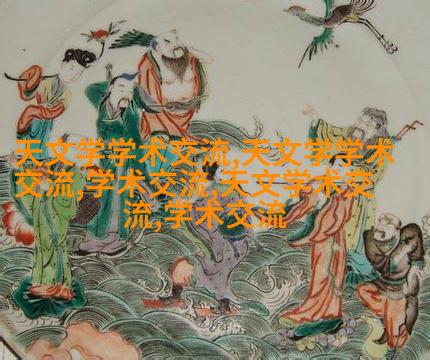 天文学学术交流,天文学学术
交流,学术交流,天文学术交
流,学术交流